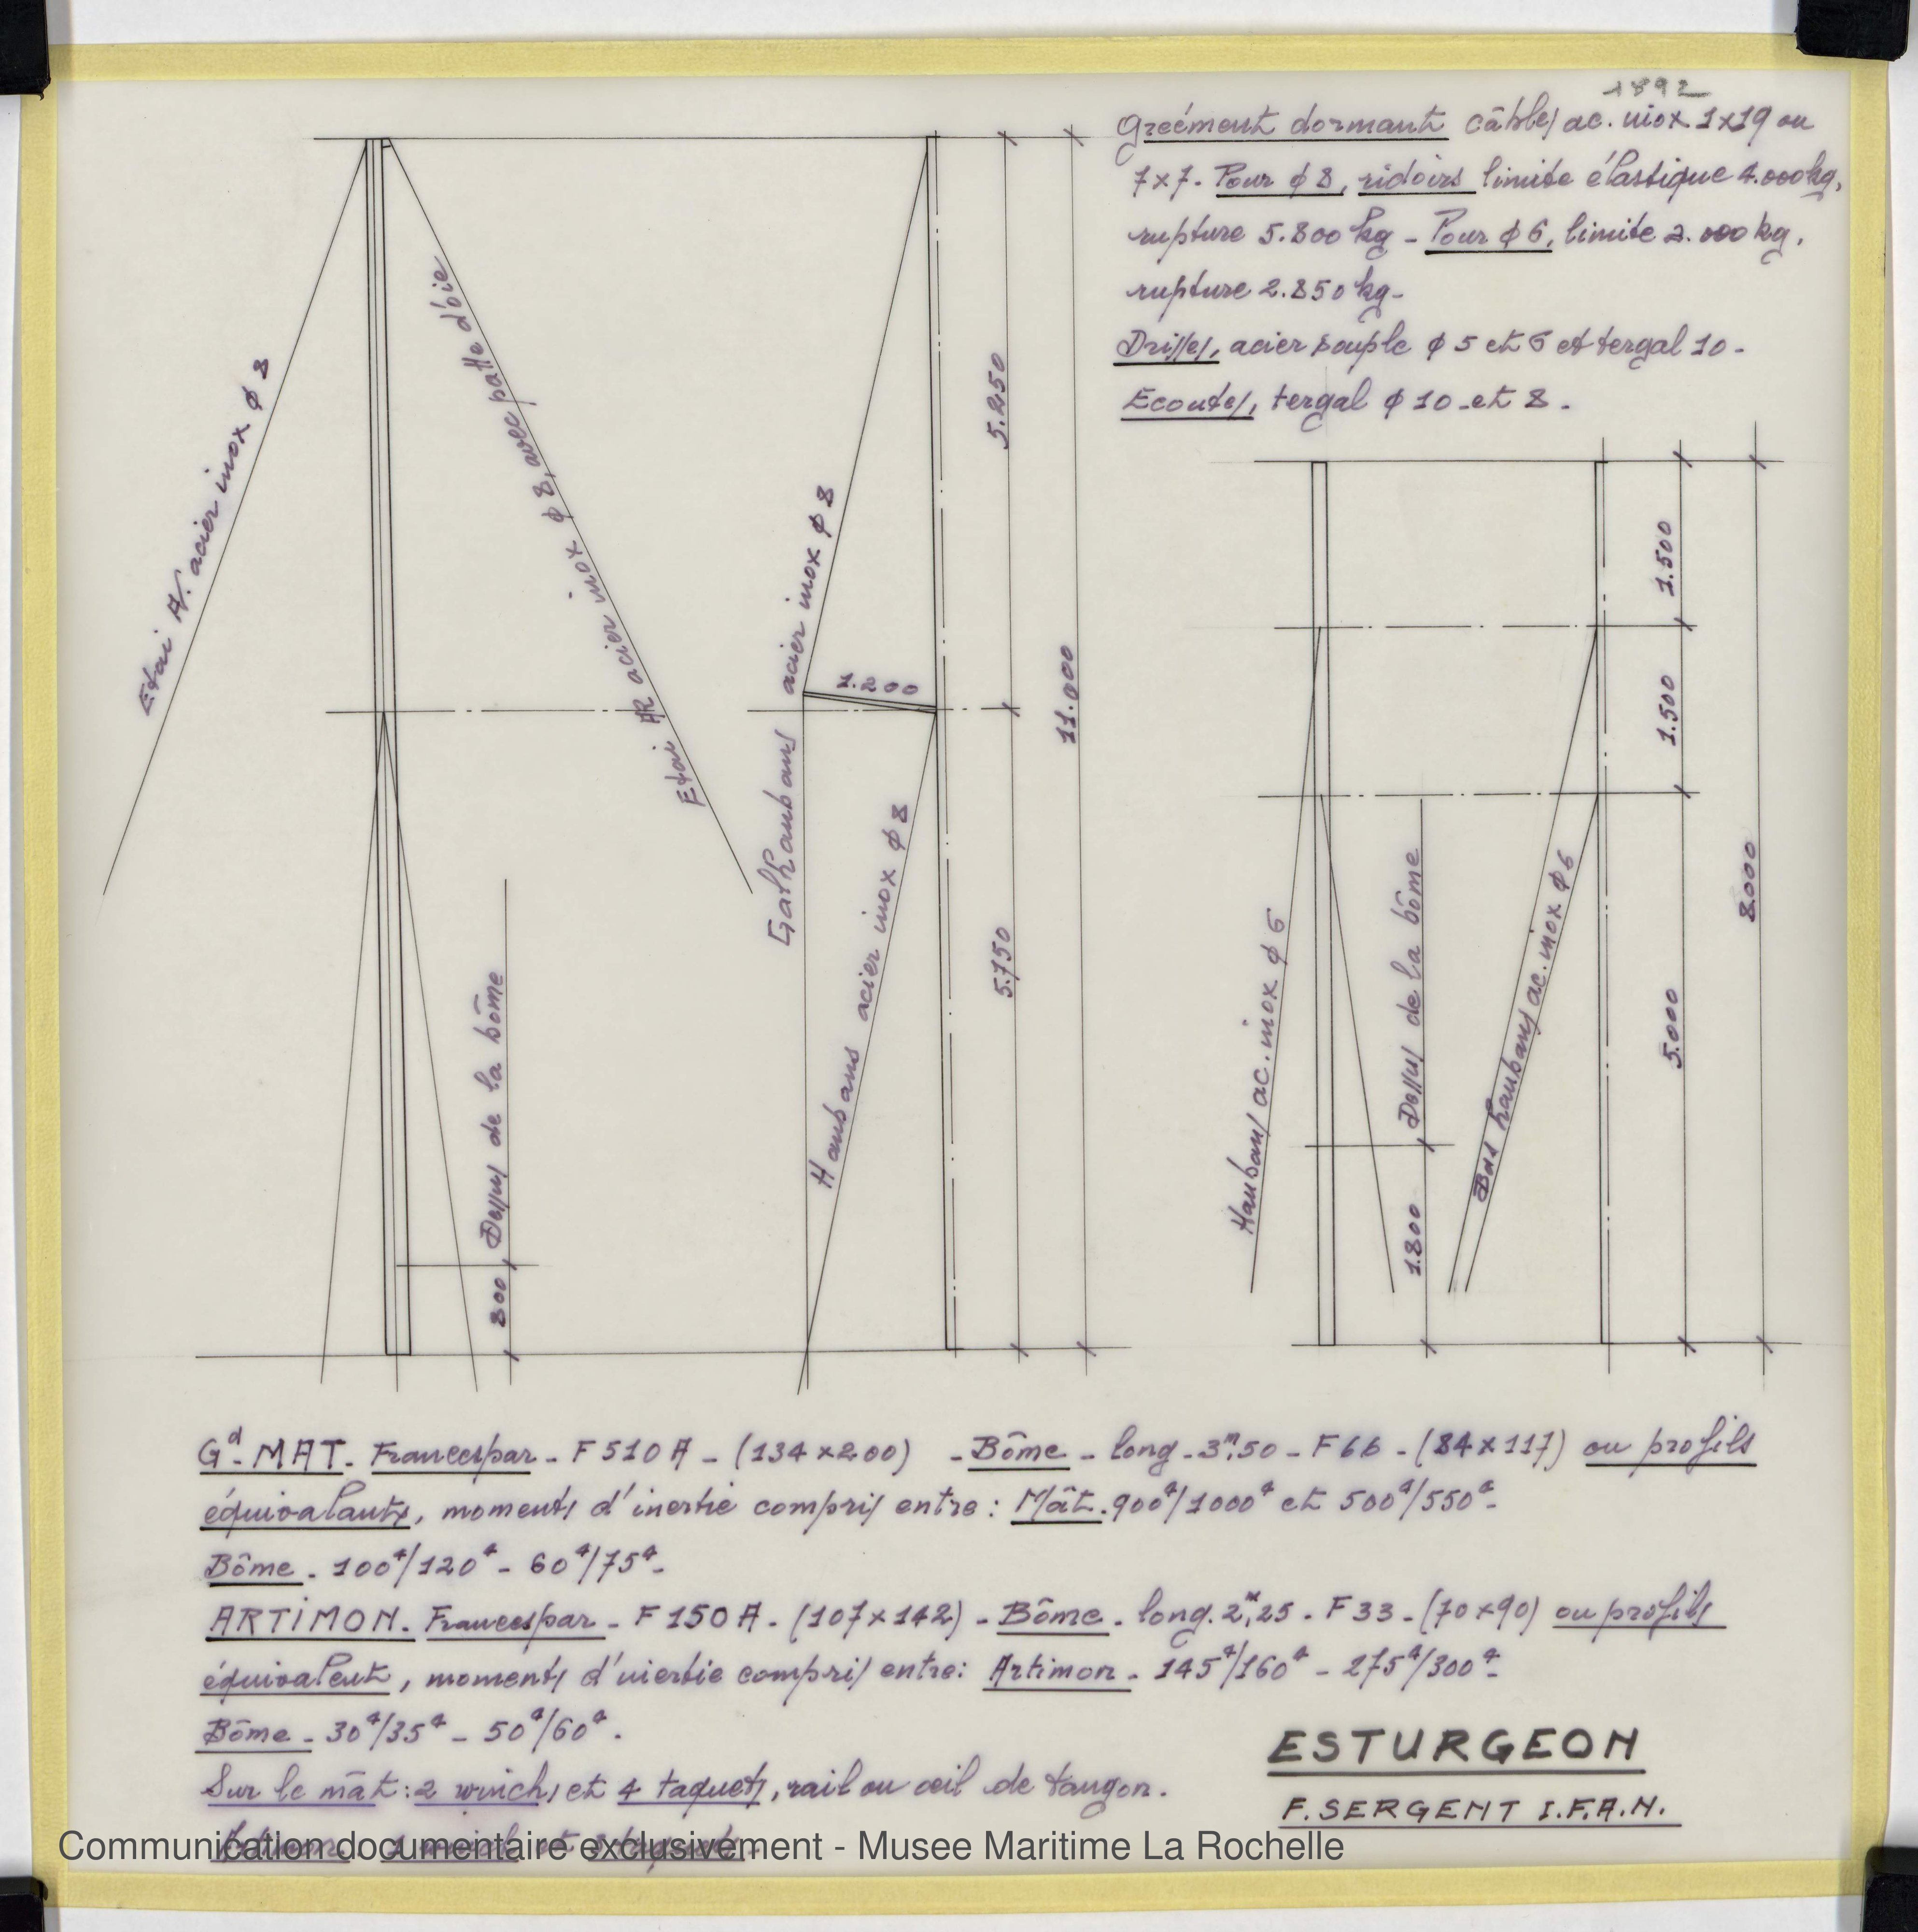 1892
Gréement dormant câbles ac. inox 1x19 ou
7x7. Pour ϕ 8, ridoirs limite élastique 4.000kg,
rupture 5.800 kg - Pour ϕ 6, limite 2.000 kg,
rupture 2.850 kg-
Drisses, acier souple ϕ 5 et 6 et tergal 10-
Ecoutes, tergal ϕ 10 et 8.
Etai AV. acier inox ϕ 8
Etai AR acier inox ϕ 8, avec patte d'oie
Galhaubans acier inox ϕ 8
Haubans acier inox ϕ 8
1.200
5.250
5.750
11.000
800
Dessus de la bôme
Haubans ac. inox ϕ 6
Bas haubans ac. inox ϕ 6
Dessus de la bôme
1.800
1.500
1.500
5.000
8.000
Gd-MAT- Francespar - F 510 A - (134 x 200) - Bôme - long - 3m,50 - F 66 - (84 x 117) ou profils
équivalants, moments d'inertie compris entre : Mât. 900⁴/1000⁴ et 500⁴/550⁴-
Bôme - 100⁴/120⁴ - 60⁴/75⁴-
ARTIMON. Francespar - F 150 A - (107 x 142) - Bôme - long. 2m,25 - F 33 - (70 x 90) ou profils
équivalent, moments d'inertie compris entre: Artimon - 145⁴/160⁴ - 275⁴/300⁴-
Bôme - 30⁴/35⁴ - 50⁴/60⁴.
Sur le mât : 2 winchs et 4 taquets, rail ou œil de tangon.
ESTURGEON
F. SERGENT I.F.A.N.
Communication documentaire exclusivement - Musee Maritime La Rochelle